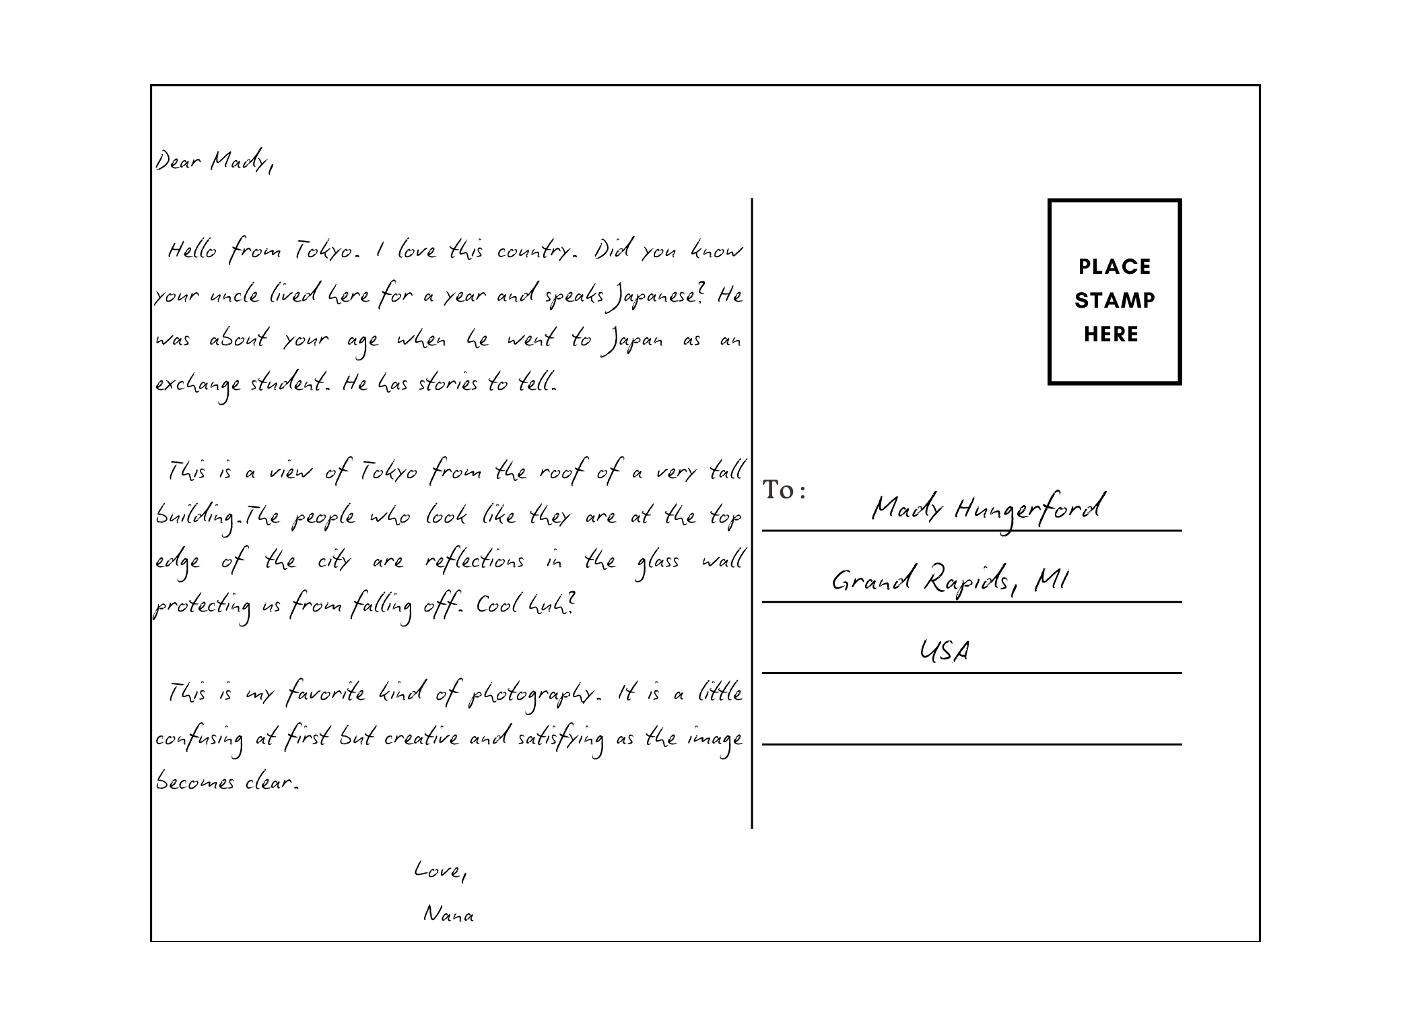 Dear Mady,
Hello from Tokyo. I love this country. Did you know
your uncle lived here for a year and speaks Japanese? He
was about your age when he went to Japan as an
exchange student. He has stories to tell.
This is a view of Tokyo from the roof of a very tall
building.The people who look like they are at the top
edge of the city are reflections in the glass wall
protecting us from falling off. Cool huh?
This is my favorite kind of photography. It is a little
confusing at first but creative and satisfying as the image
becomes clear.
Love,
Nana
PLACE
STAMP
HERE
To:
Mady Hungerford
Grand Rapids, MI
USA